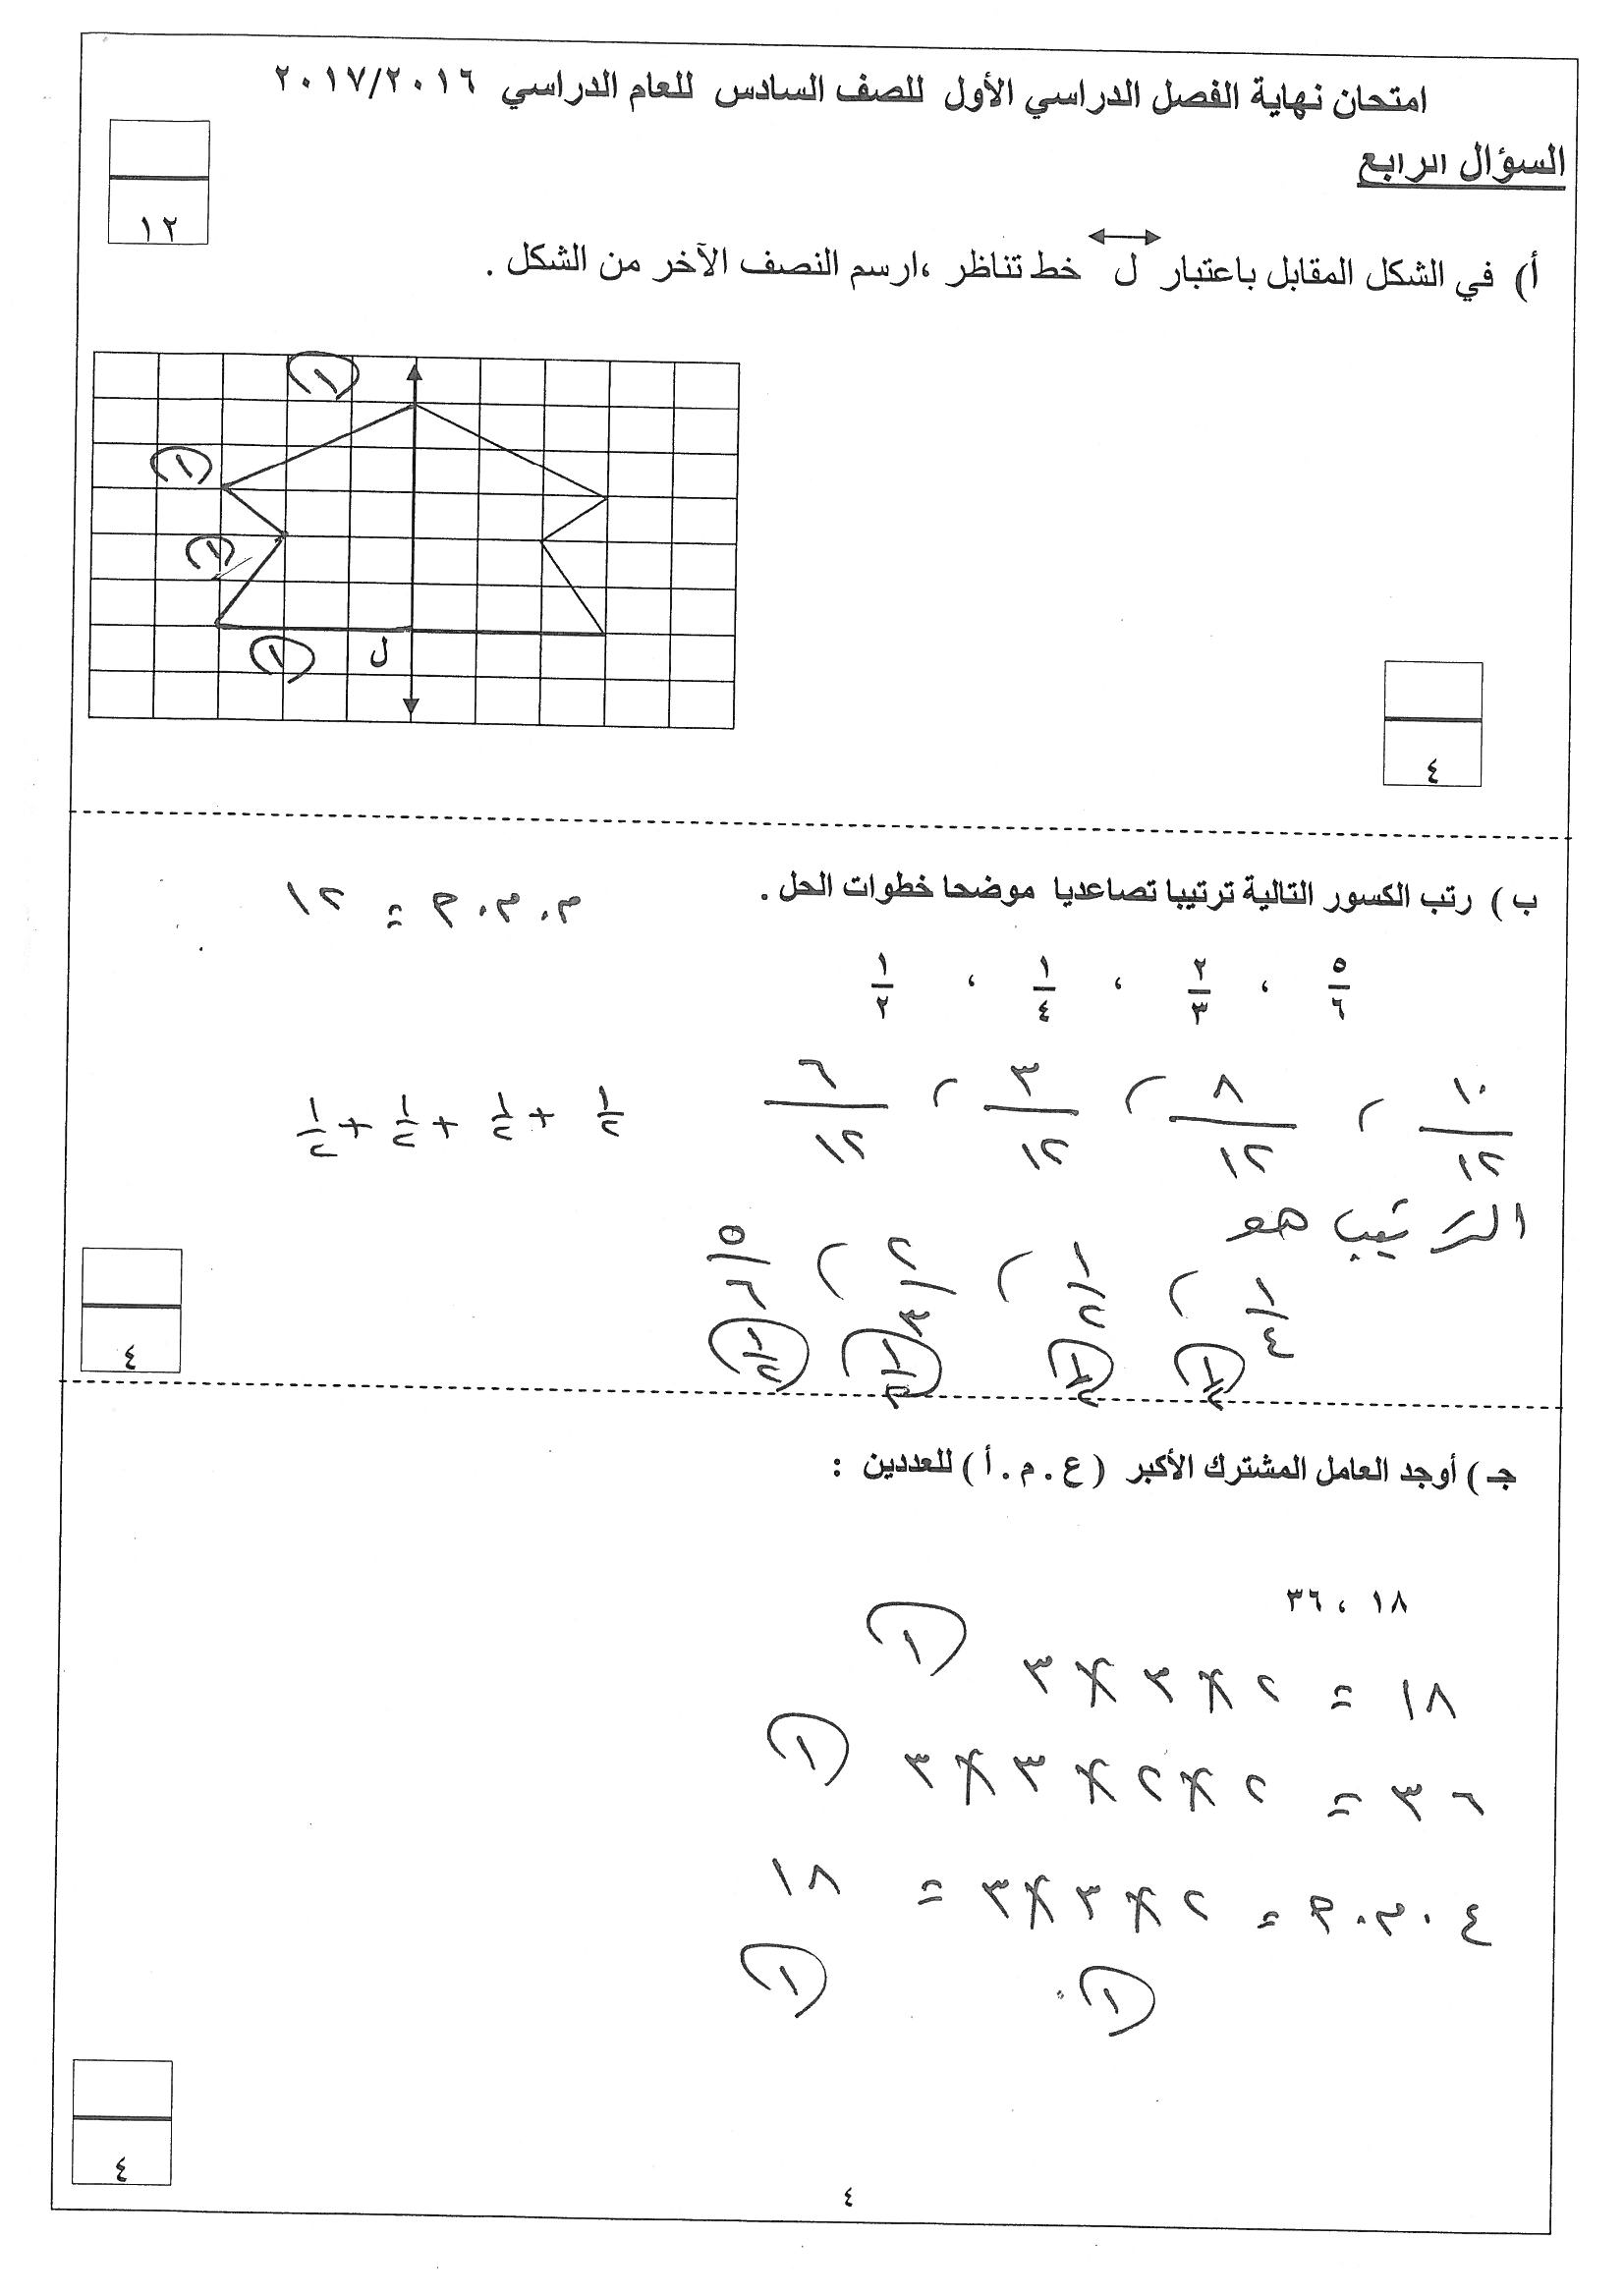 امتحان نهاية الفصل الدراسي الأول للصف السادس للعام الدراسي ٢٠١٧/٢٠١٦
السؤال الرابع
١٢
أ) في الشكل المقابل باعتبار ل خط تناظر ،ارسم النصف الآخر من الشكل .
١
١
١
١
ل
٤
ب ) رتب الكسور التالية ترتيبا تصاعديا موضحا خطوات الحل .
م . م . م = ١٢
٥/٦ ، ٢/٣ ، ١/٤ ، ١/٢
١٠/١٢ ، ٨/١٢ ، ٣/١٢ ، ٦/١٢
١/٢ + ١/٢ + ١/٢ + ١/٢
الترتيب هو
١/٤ ، ١/٢ ، ٢/٣ ، ٥/٦
١/٢ ١/٢ ١/٢ ١/٢
٤
جـ ) أوجد العامل المشترك الأكبر ( ع . م . أ ) للعددين :
١٨ ، ٣٦
١٨ = ٢ × ٣ × ٣ ١
٣٦ = ٢ × ٢ × ٣ × ٣ ١
ع . م . م = ٢ × ٣ × ٣ = ١٨
١ ١
٤
٤